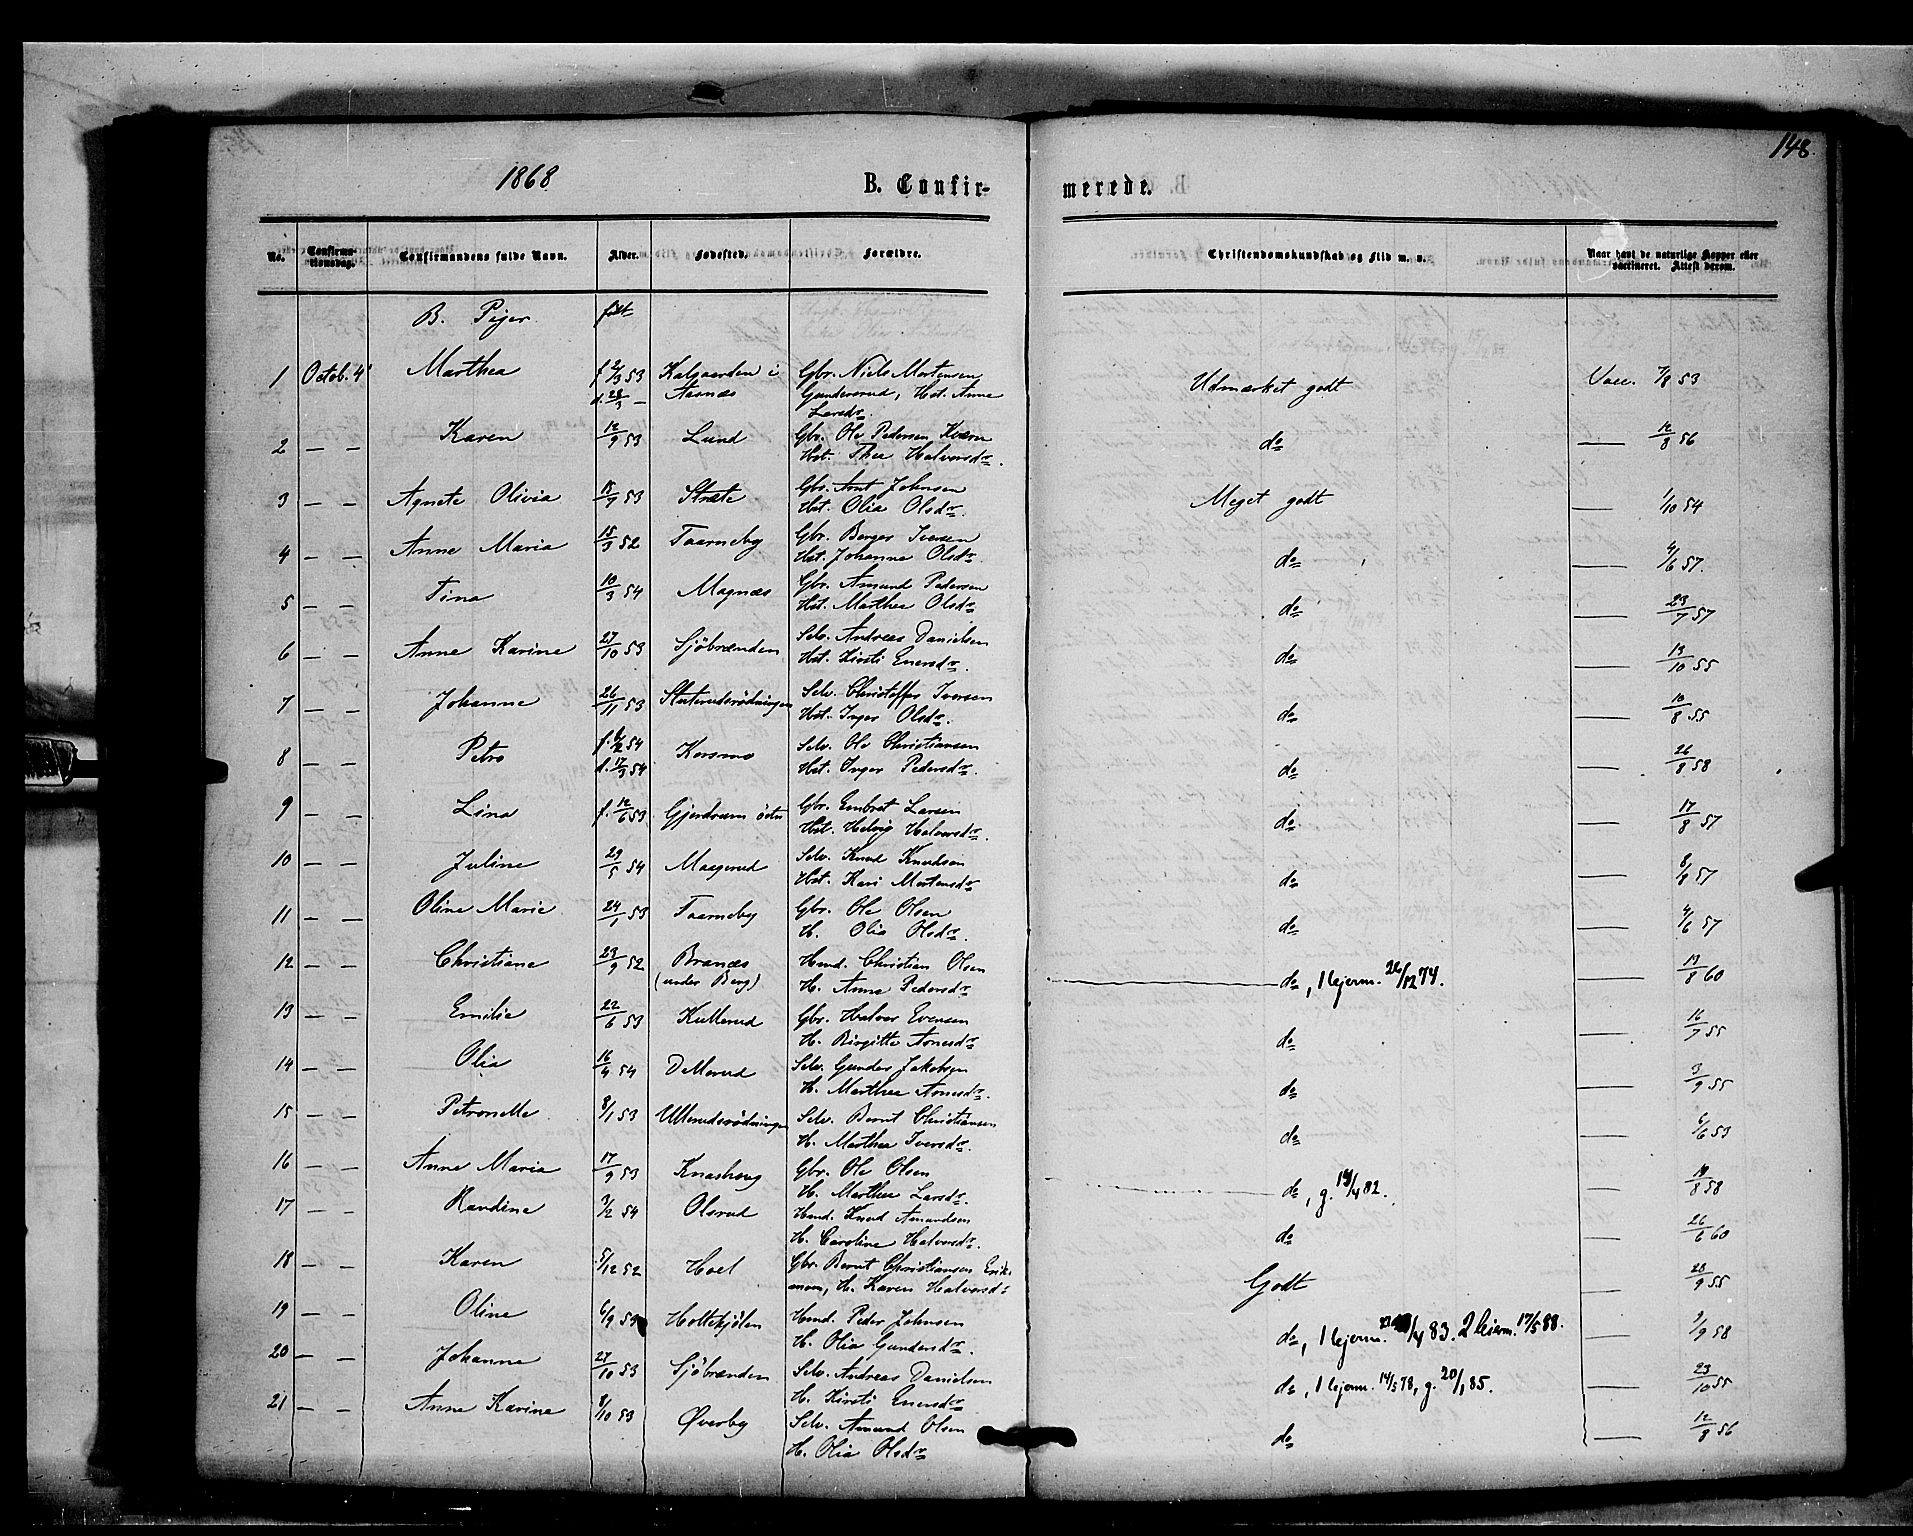 148.
1868
B. Confir-
merede.
No.
Confirma-
tionsdag.
Confirmandens fulde Navn.
Alder.
Fødested.
Forældre.
Christendomskundskab og Flid m. v.
Naar havt de naturlige Kopper eller
vaccineret. Attest derom.
B. Piger. født
1 Octob. 4 Marthea f 2/3 53 Kalgaarden i Gbr. Niels Mortensen Udmærket godt Vacc. 7/8 53
d. 28/3 — Aasnæs Gundersrud, Hst. Anne
Larsdr.
2 — — Karen 12/9 53 Lund Gbr. Ole Pedersen Kværn do — 12/8 56
Hst. Thea Halvorsdr.
3 — — Agnete Olivia 18/9 53 Stræte Gbr. Arnt Johnsen Meget godt — 1/10 54
Hst. Olia Olsdr.
4 — — Anne Maria 15/3 52 Taarneby Gbr. Berger Iversen do — 4/6 57.
Hst. Johanne Olsdr.
5 — — Tina 10/3 54 Magnæs Gbr. Amund Pedersen do — 23/7 57
Hst. Marthea Olsdr
6 — — Anne Karine 27/10 53 Sjöbrænden Selv. Andreas Danielsen do — 13/10 55
Hst. Kirsti Enersdr.
7 — — Johanne 26/11 53 Sluterudsrødningen Selv. Christoffer Iversen do — 10/8 55
Hst. Inger Olsdr.
8 — — Petra f. 6/2 54 Korsmo Selv. Ole Christiansen do — 26/8 58
d. 17/3 54 Hst. Inger Pedersdr.
9 — — Lina f. 12/6 53 Gjerdrum östre Gbr. Embret Larsen do — 17/8 57
Hst. Helvig Halvorsdr.
10 — — Juline 29/5 54 Maagerud Selv. Knud Knudsen do — 8/8 57
Hst. Kari Mortensdr
11 — — Oline Marie 24/1 53 Taarneby Gbr. Ole Olsen do — 4/6 57
H. Olia Olsdr.
12 — — Christiane 23/9 52 Branæs Hmd. Christian Olsen do, 1 lejerm. 26/12 74. — 13/8 60
(under Berg) H. Anne Pedersdr
13 — — Emilie 22/6 53 Kullerud Gbr. Halvor Evensen do — 16/7 55
H. Birgitte Arnesdr
14 — — Olia 16/4 54 Dellerud Selv. Gunder Jakobsen do — 3/9 55
H. Marthea Arnesdr.
15 — — Petronelle 8/1 53 Ullerudsrødningen Selv. Bernt Christiansen do — 6/6 53
H. Marthea Iversdr.
16 — — Anne Maria 17/9 53 Knashoug Gbr. Ole Olsen do, g. 14/4 82. — 18/8 58
H. Marthea Larsdr.
17 — — Randine 3/2 54 Olsrud Hmd. Knud Amundsen do — 26/6 60
H. Caroline Halvorsdr.
18 — — Karen 5/12 52 Hoel Gbr. Bernt Christiansen Erik- Godt — 28/9 55
H. Karen Halvorsdr
19 — — Oline 6/9 53 Holtekjölen Hmd. Peder Johnsen do, 1 lejerm. /4 83. 2 leierm. 17/5 88. — 2/9 58
H. Olia Gundersdr.
20 — — Johanne 27/10 53 Sjöbrænden Selv. Andreas Danielsen do, 1 lejerm. 14/5 78, g. 20/1 85. — 23/10 55
H. Kirsti Enersdr
21 — — Anne Karine 8/10 53 Øverby Selv. Amund Olsen do — 12/8 56
H. Olia Olsdr